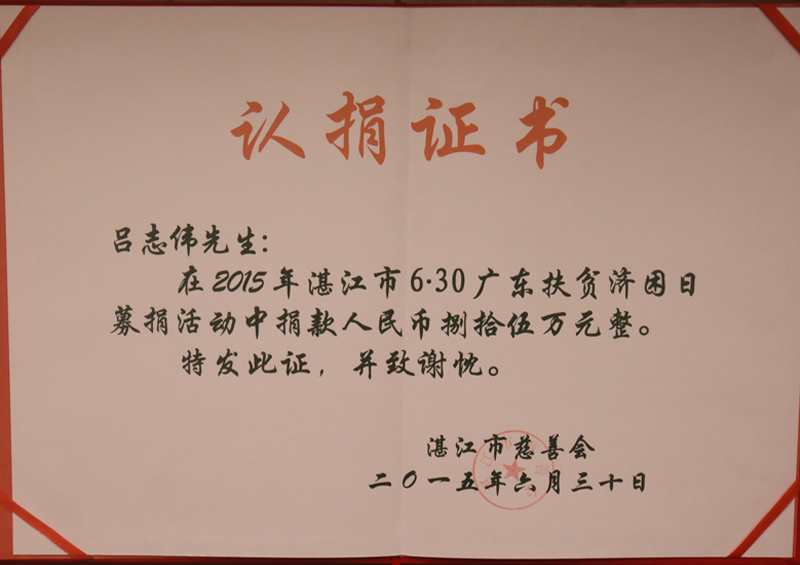 认捐证书
吕志伟先生:
在2015年湛江市6·30广东扶贫济困日
募捐活动中捐款人民币捌拾伍万元整。
特发此证，并致谢忱。
湛江市慈善会
二〇一五年六月三十日